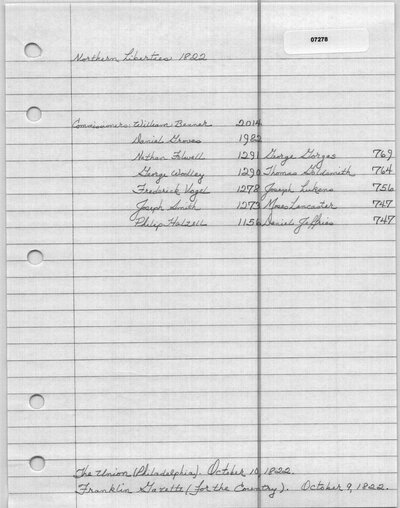 07278
Northern Liberties 1822
Commissioners: William Benner 2014
Daniel Groves 1982
Nathan Folwell 1291 George Gorgas 769
George Woolley 1290 Thomas Goldsmith 764
Frederick Vogel 1278 Joseph Lukens 756
Joseph Smith 1273 Moses Lancaster 747
Philip Halzell 1156 Daniel Jeffries 747
The Union (Philadelphia). October 10, 1822.
Franklin Gazette (for the Country). October 9, 1822.